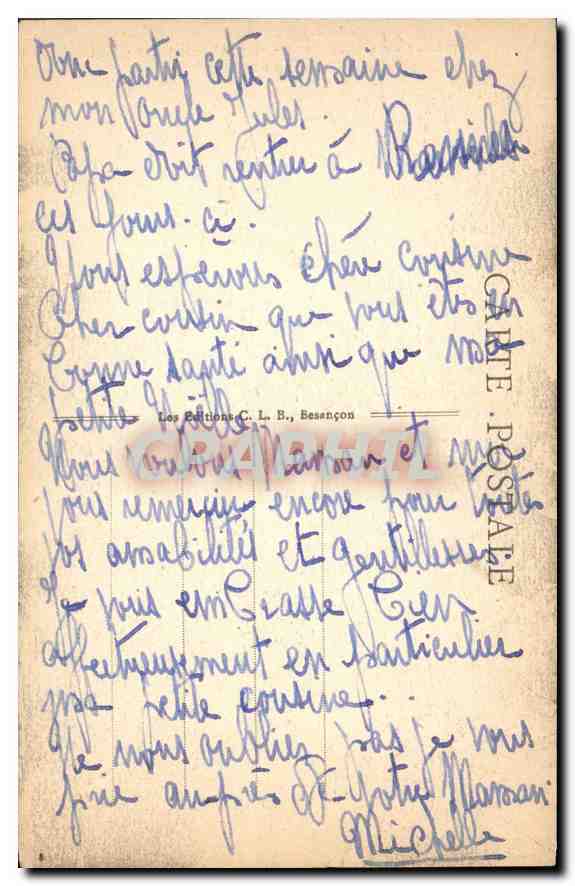 donc partir cette semaine chez
mon oncle Jules.
Papa doit rentrer à
ces jours-ci.
Nous espérons chère cousine
cher cousin que vous êtes en
bonne santé ainsi que ma
petite
Les Editions C. L. B., Besançon
CARTE POSTALE
CARAPHIL
Nous voulons Maman et moi
vous remercier encore pour toutes
vos amabilités et gentillesses
Je vous embrasse bien
affectueusement en particulier
ma petite cousine...
Ne nous oubliez pas je vous
prie auprès de votre Maman
Michelle